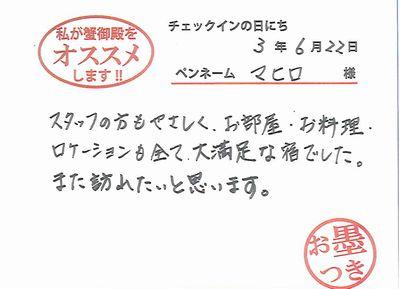 私が蟹御殿を
オススメ
します!!
チェックインの日にち
3 年 6 月 22 日
ペンネーム マヒロ 様
スタッフの方もやさしく、お部屋・お料理・
ロケーションも全て、大満足な宿でした。
また訪れたいと思います。
お墨
つき